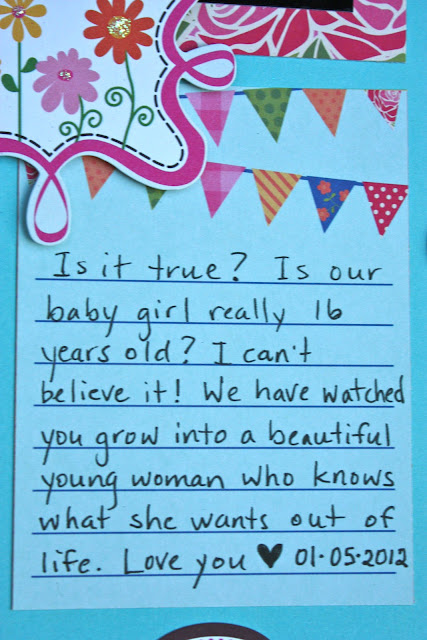 Is it true? Is our
baby girl really 16
years old? I can't
believe it! We have watched
you grow into a beautiful
young woman who knows
what she wants out of
life. Love you ♥ 01·05·2012